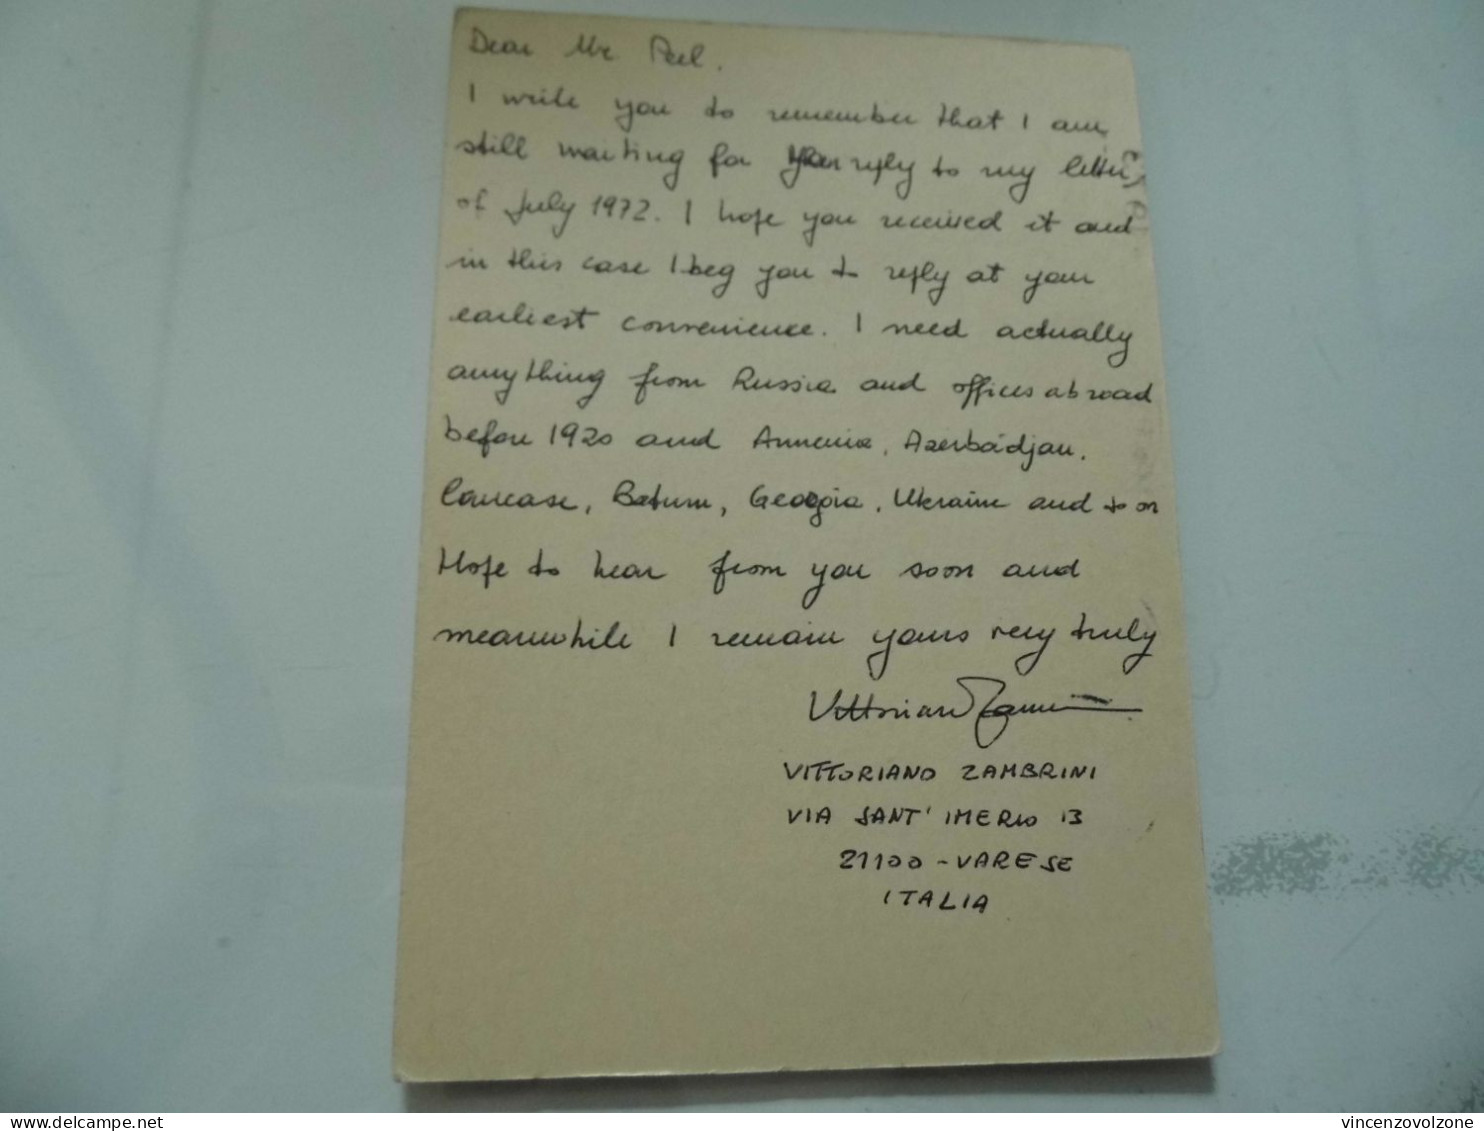 Dear Mr Peel.
I write you to remember that I am
still waiting for your reply to my letter
of July 1972. I hope you received it and
in this case I beg you to reply at your
earliest convenience. I need actually
anything from Russia and offices abroad
before 1920 and Armenia, Azerbadjan,
Caucase, Batum, Georgia, Ukraine and so on
Hope to hear from you soon and
meanwhile I remain yours very truly
Vittoriano Zambrini
VITTORIANO ZAMBRINI
VIA SANT' IMERIO 13
21100 - VARESE
ITALIA
vincenzovolzone